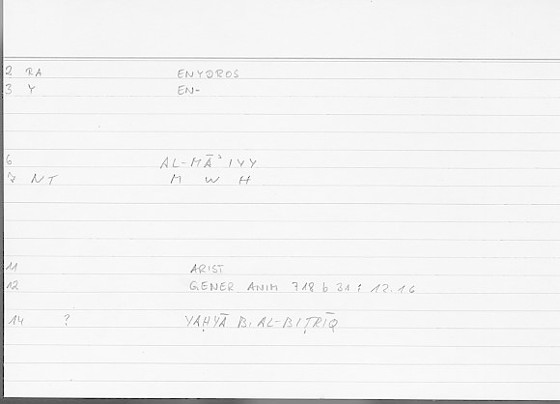 2 RA ENYDROS
3 Y EN-
6 AL-MĀʾIYY
7 NT M W H
11 ARIST
12 GENER ANIM 718 b 31 : 12.16
14 ? YAḤYĀ B. AL-BIṬRĪQ